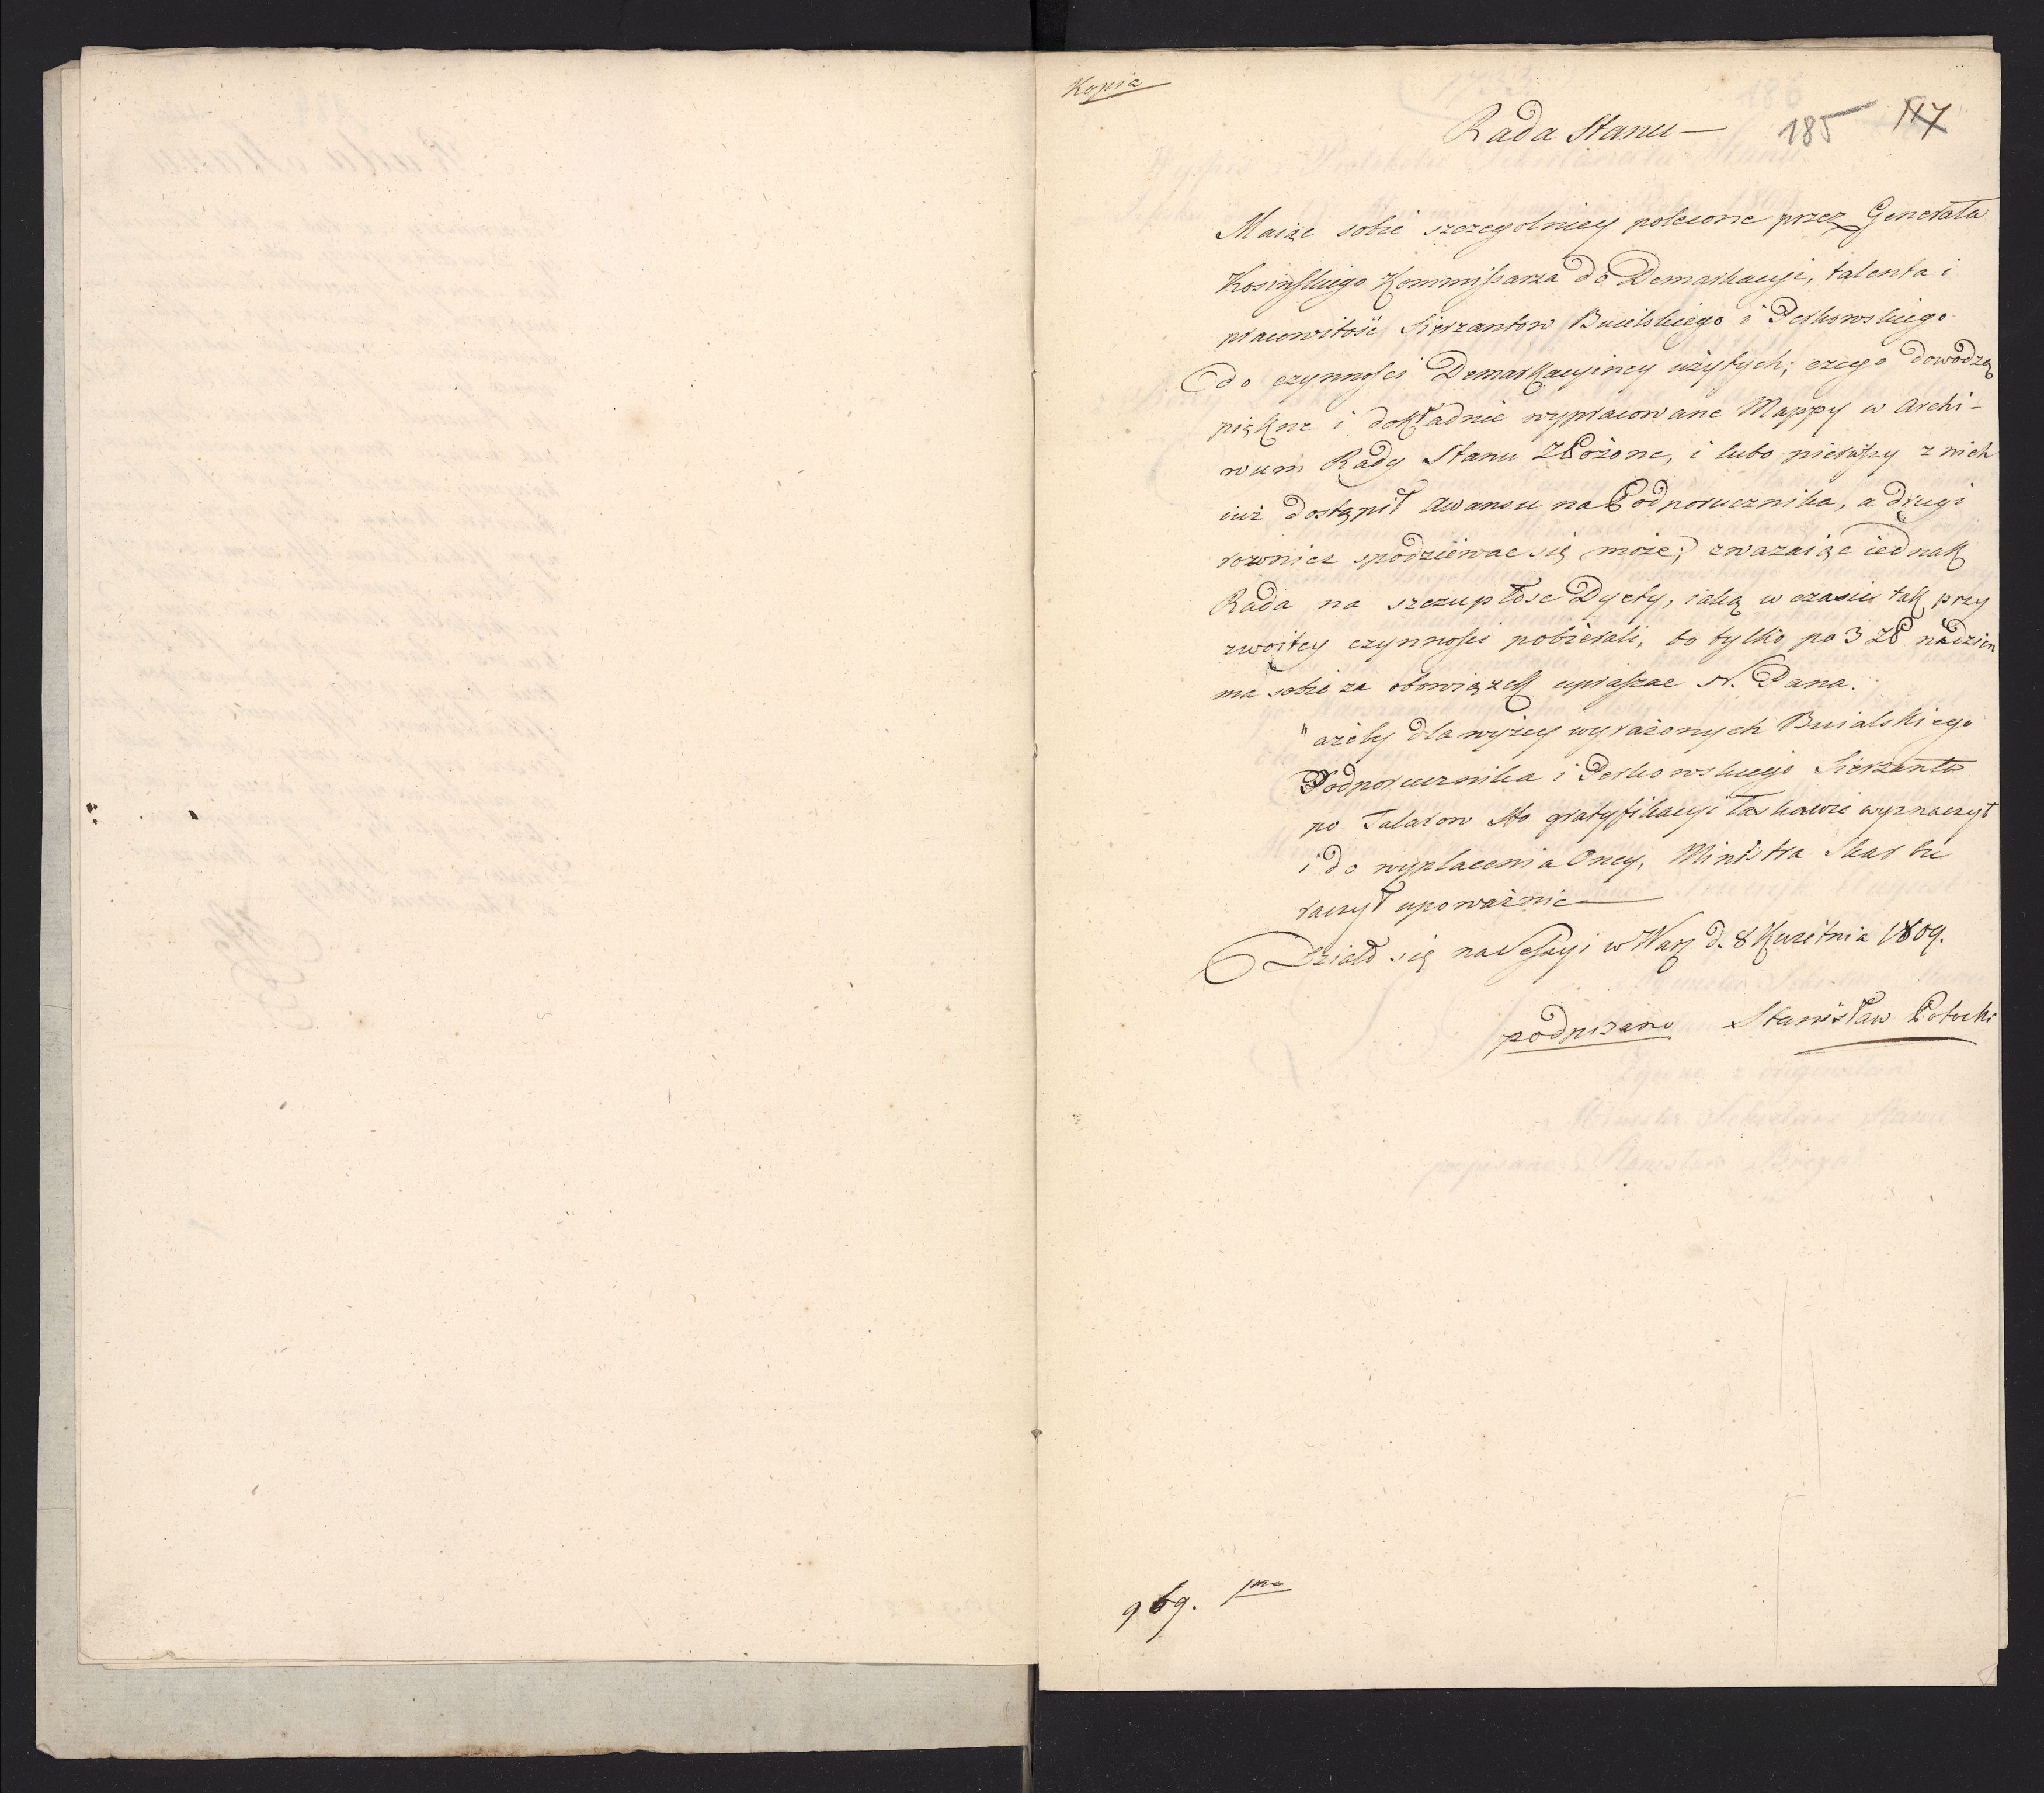 Kopia
Rada Stanu —
185 117
Maiąc sobie szczegolniey polecone przez Generała
Kosinskiego Kommissarza do Demarkacyi, talenta i
pracowitość Sierzantow Buialskiego i Perkowskiego
do czynności Demarkacyiney użytych; czego dowodzą
piękne i dokładnie wypracowane Mappy w Archi-
wum Rady Stanu złożone, i lubo pierwszy z nich
iuż dostąpił Awansu na Podporucznika, a drugi
rownież spodziewać się może; zwazaiąc iednak
Rada na szczupłosc Dyety, iaką w czasie tak przy
zwoitey czynności pobierali, bo tylko po 3 zł na dzien
ma sobie za obowiązek upraszac N. Pana.
" ażeby dla wyżey wyrażonych Buialskiego
Podporucznika i Perkowskiego Sierzanta
po Talarow sto gratyfikacyi łaskawie wyznaczył
i do wypłacenia Oney, Ministra Skarbu
raczył upoważnic —
Działo się na Sessyi w Warsz d. 8 Kwietnia 1809.
podpisano Stanisław Potocki
969.